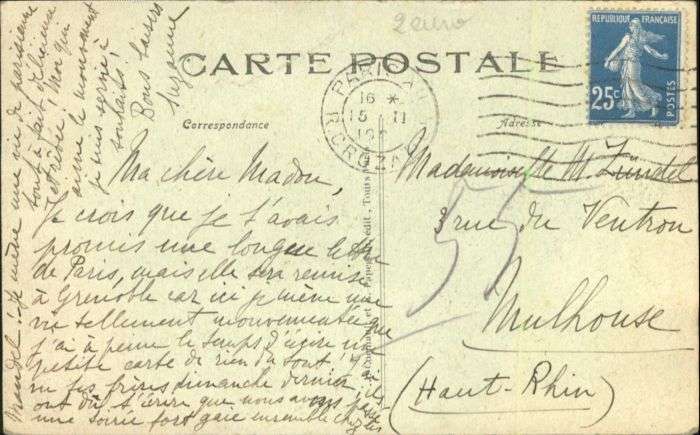 2 euro
CARTE POSTALE
RÉPUBLIQUE FRANÇAISE
25c
POSTES
PARIS
16 *
15 II
R. CROZATIER
Correspondance
Adresse
Ma chère Madou,
Je crois que je t'avais
promis une longue lettre
de Paris, mais elle sera remise
à Grenoble car ici je mène une
vie tellement mouvementée que
j'ai à peine le temps d'écrire une
petite carte de rien du tout!
tes frères dimanche dernier ils
ont dû t'écrire que nous avons passé
une soirée fort gaie ensemble chez les
Mandel! Je mène une vie de parisienne
tout à fait
et moi qui
aime le mouvement
je suis servie à
souhaits!
Bons baisers
Suzanne
Mademoiselle M. Zündel
3 rue du Ventron
55
Mulhouse
(Haut-Rhin)